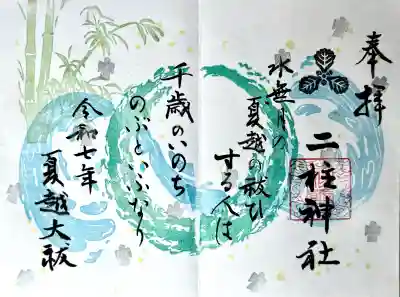 奉拝
二柱神社
水無月の
夏越の祓ひ
する人は
千歳のいのち
のぶといふなり
令和七年
夏越大祓